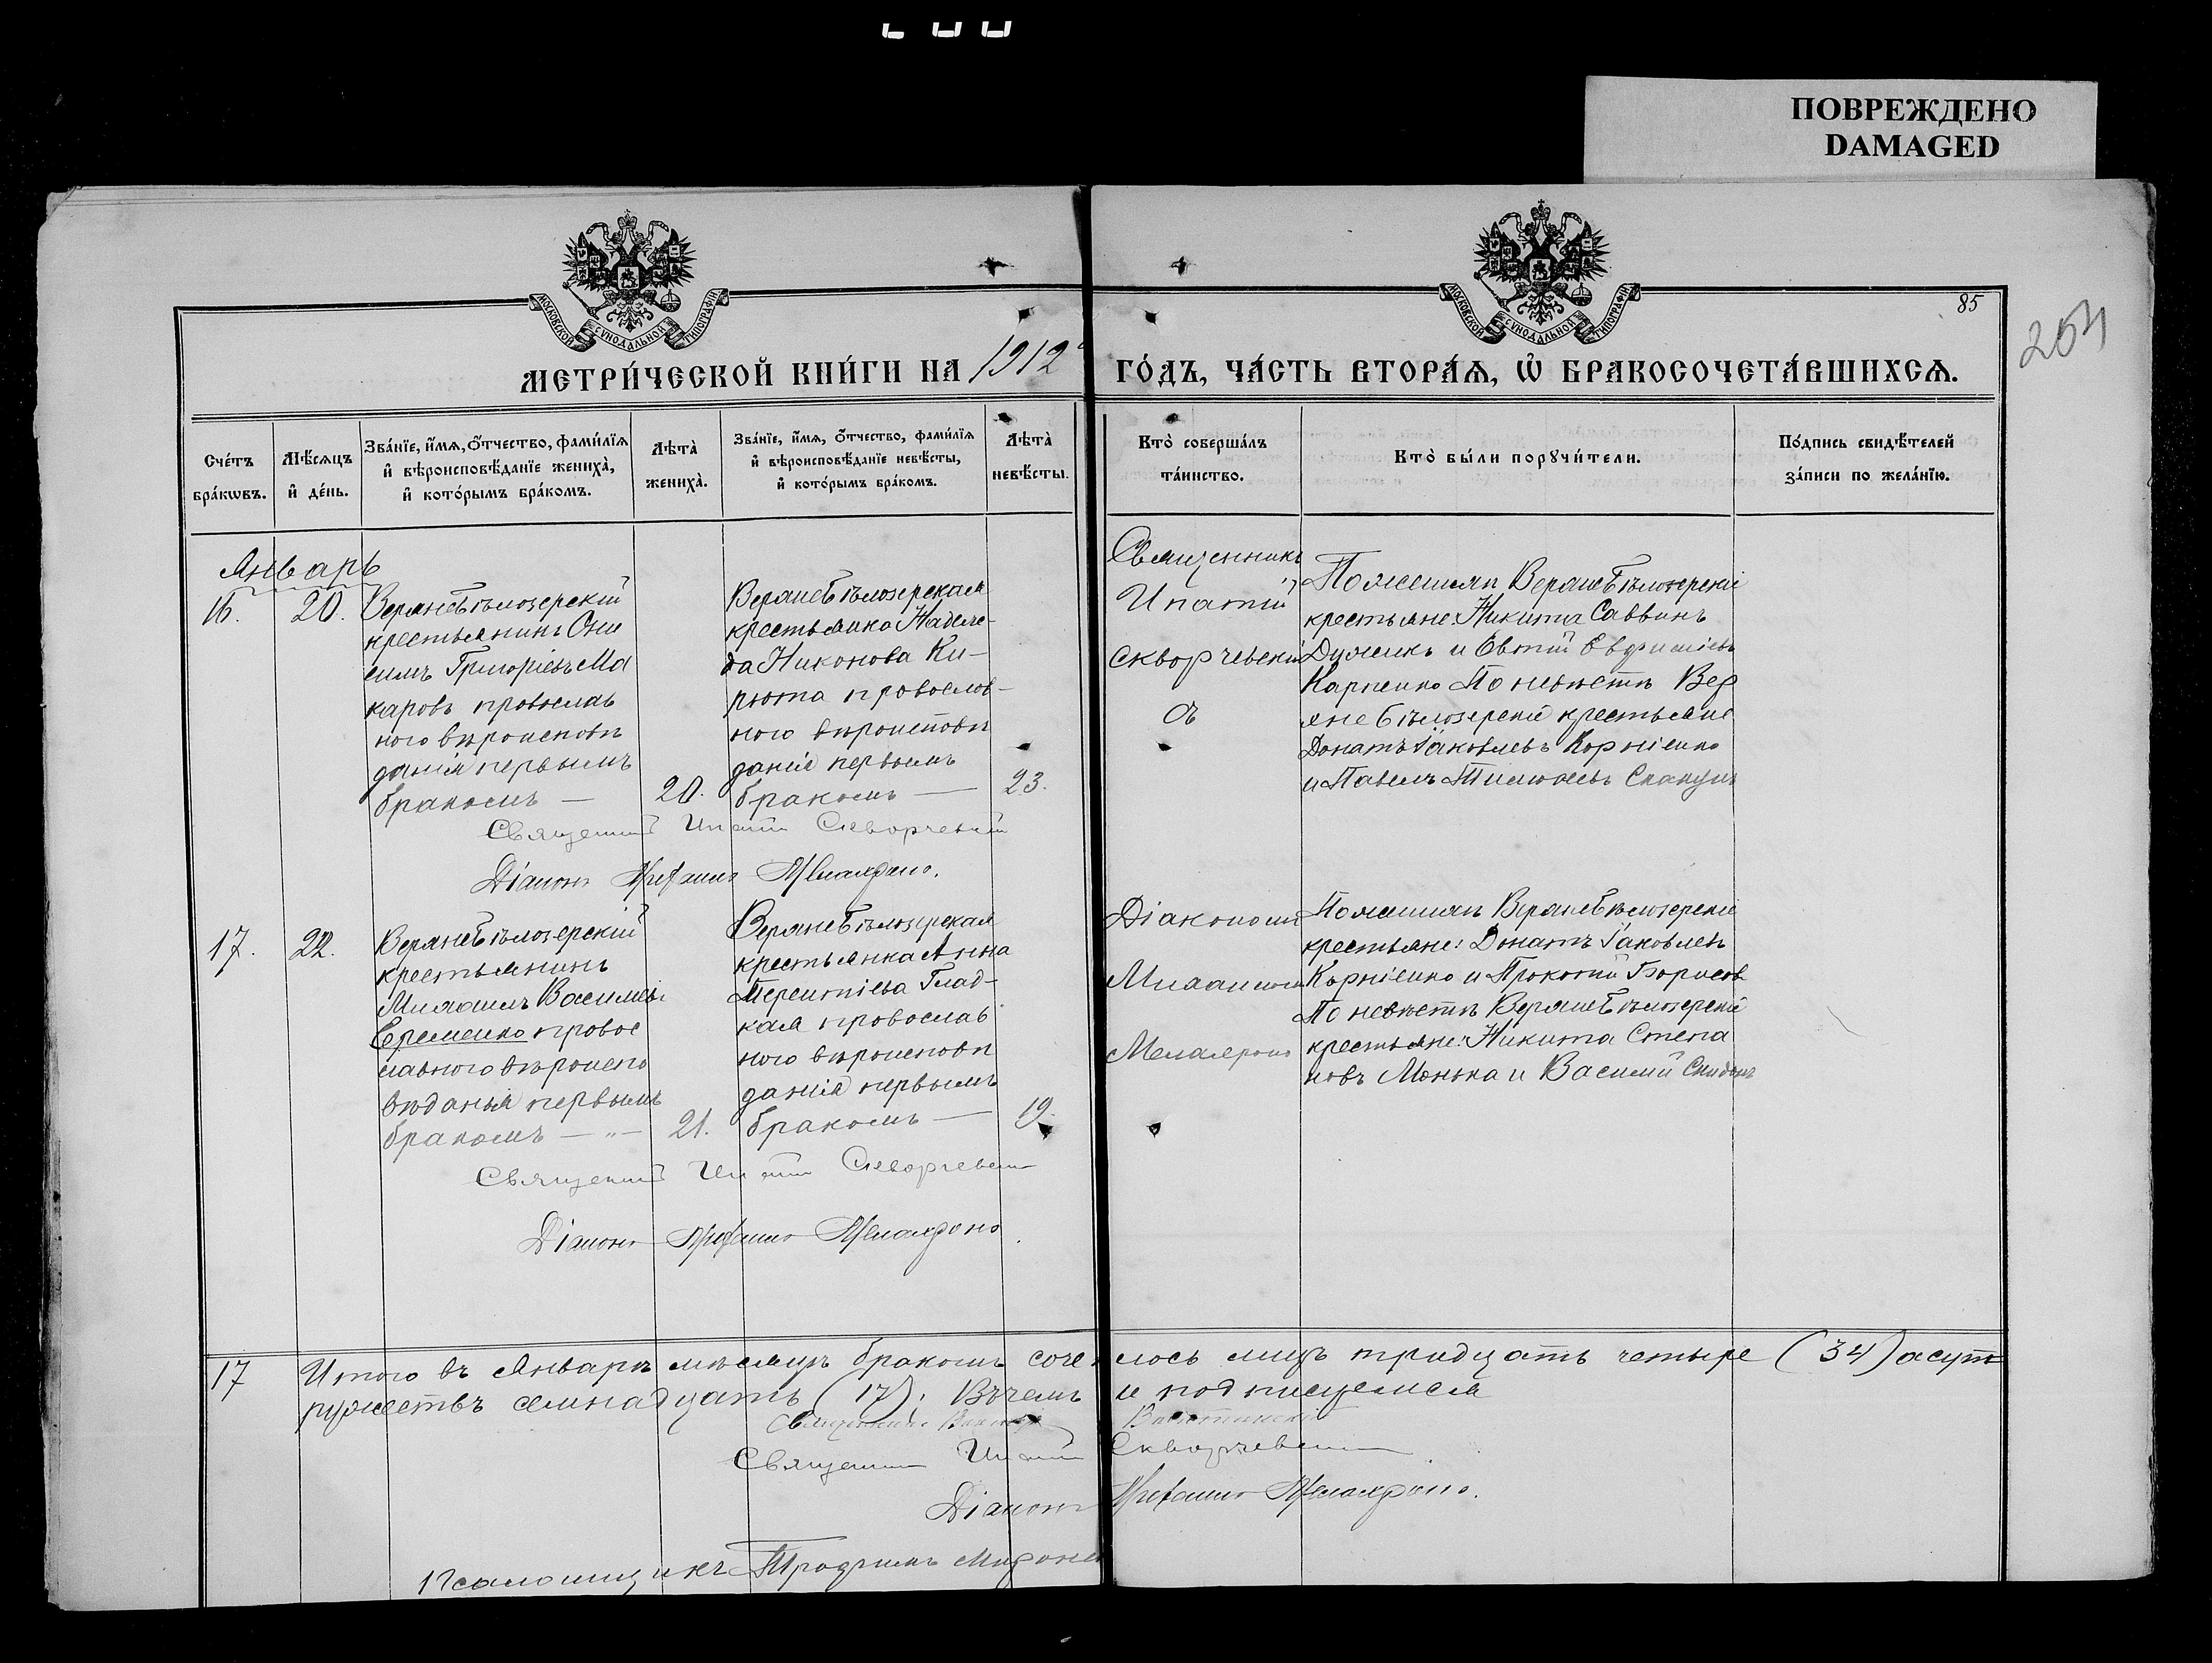 ПОВРЕЖДЕНО
DAMAGED
МОСКОВСКОЙ СѴНОДАЛЬНОЙ ТИПОГРАФІИ
МОСКОВСКОЙ СѴНОДАЛЬНОЙ ТИПОГРАФІИ
85
204
МЕТРИ́ЧЕСКОЙ КНИ́ГИ НА 1912 ГО́ДЪ, ЧА́СТЬ ВТОРА́Ѧ, Ѡ҆ БРАКОСОЧЕТА́ВШИХСѦ.
Сче́тъ
бра́кѡвъ.
Мѣ́сѧцъ
и҆ де́нь.
Зва́нїе, и҆́мѧ, ѻ҆́тчество, фами́лїѧ
и҆ вѣроисповѣ́данїе жениха̀,
и҆ кото́рымъ бра́комъ.
Лѣта̀
жениха̀.
Зва́нїе, и҆́мѧ, ѻ҆́тчество, фами́лїѧ
и҆ вѣроисповѣ́данїе невѣ́сты,
и҆ кото́рымъ бра́комъ.
Лѣта̀
невѣ́сты.
Кто̀ соверша́лъ
та́инство.
Кто̀ бы́ли порꙋчи́тели.
По́дпись свидѣ́телей
за́писи по жела́нїю.
Январь
16.
20.
Верхнебѣлозерскій
крестьянинъ Они
симъ Григоріевъ Ма
каровъ православ
ного вѣроисповѣ
данія первымъ
бракомъ —
20.
Верхнебѣлозерская
крестьянка Надеж-
да Никонова Ки-
рюта православ-
ного вѣроисповѣ
данія первымъ
бракомъ —
23.
Священникъ
Ипатій
Скворчевскій
съ
По женихѣ Верхнебѣлозерскіе
крестьяне: Никита Саввинъ
и Евтій Евфиміевъ
Карпенко По невѣстѣ Вер
хнебѣлозерскіе крестьяне
Донатъ Іаковлевъ Корніенко
и Павелъ
Священникъ Ипатій Скворчевскій
Діаконъ
17.
22.
Верхнебѣлозерскій
крестьянинъ
Михаилъ Васильевъ
Еременко провос
лавного вѣроиспо
вѣданья первымъ
бракомъ — „ —
21.
Верхнебѣлозерская
крестьянка Анна
Терентіева Глад-
кая провослав
ного вѣроисповѣ
данія первымъ
бракомъ —
19.
Діакономъ
Михаиломъ
По женихѣ Верхнебѣлозерскіе
крестьяне: Донатъ Іаковлевъ
Корніенко и Прокопій Борисовъ
По невѣстѣ Верхнебѣлозерскіе
крестьяне: Никита Степа
новъ Монька и Василій
Священникъ Ипатій Скворчевскій
Діаконъ
17
Итого въ Январѣ мѣсяцѣ бракомъ соче лось лицъ тридцать четыре (34) а суп
ружествъ семнадцать (17). Въ чемъ и подписуемся
Священникъ
Священникъ Ипатій Скворчевскій
Діаконъ
Псаломщикъ Трофимъ